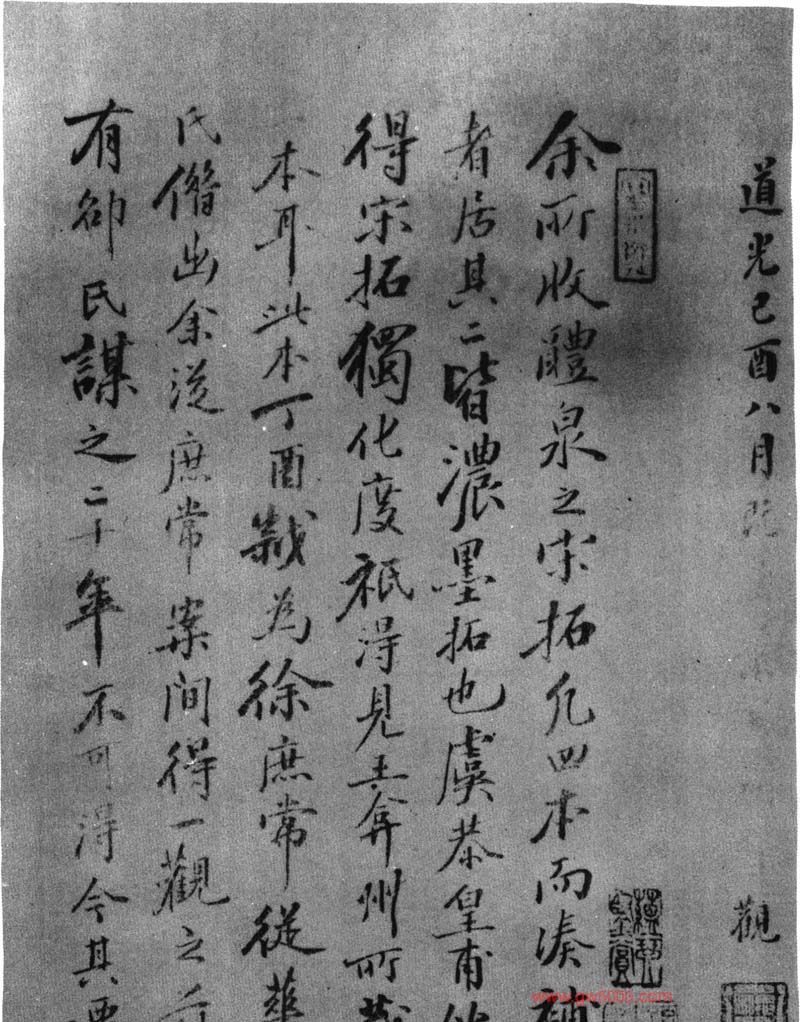 道光己酉八月 觀
余所收醴泉之宋拓凡四本而湊
者居其二皆濃墨拓也虞恭皇甫
得宋拓獨化度祇得見王弇州所藏
本耳此本丁酉歲為徐庶常從華
氏借出余從庶常案間得一觀之
有卻氏謀之二十年不可得今其
真賞
www.gw6000.com